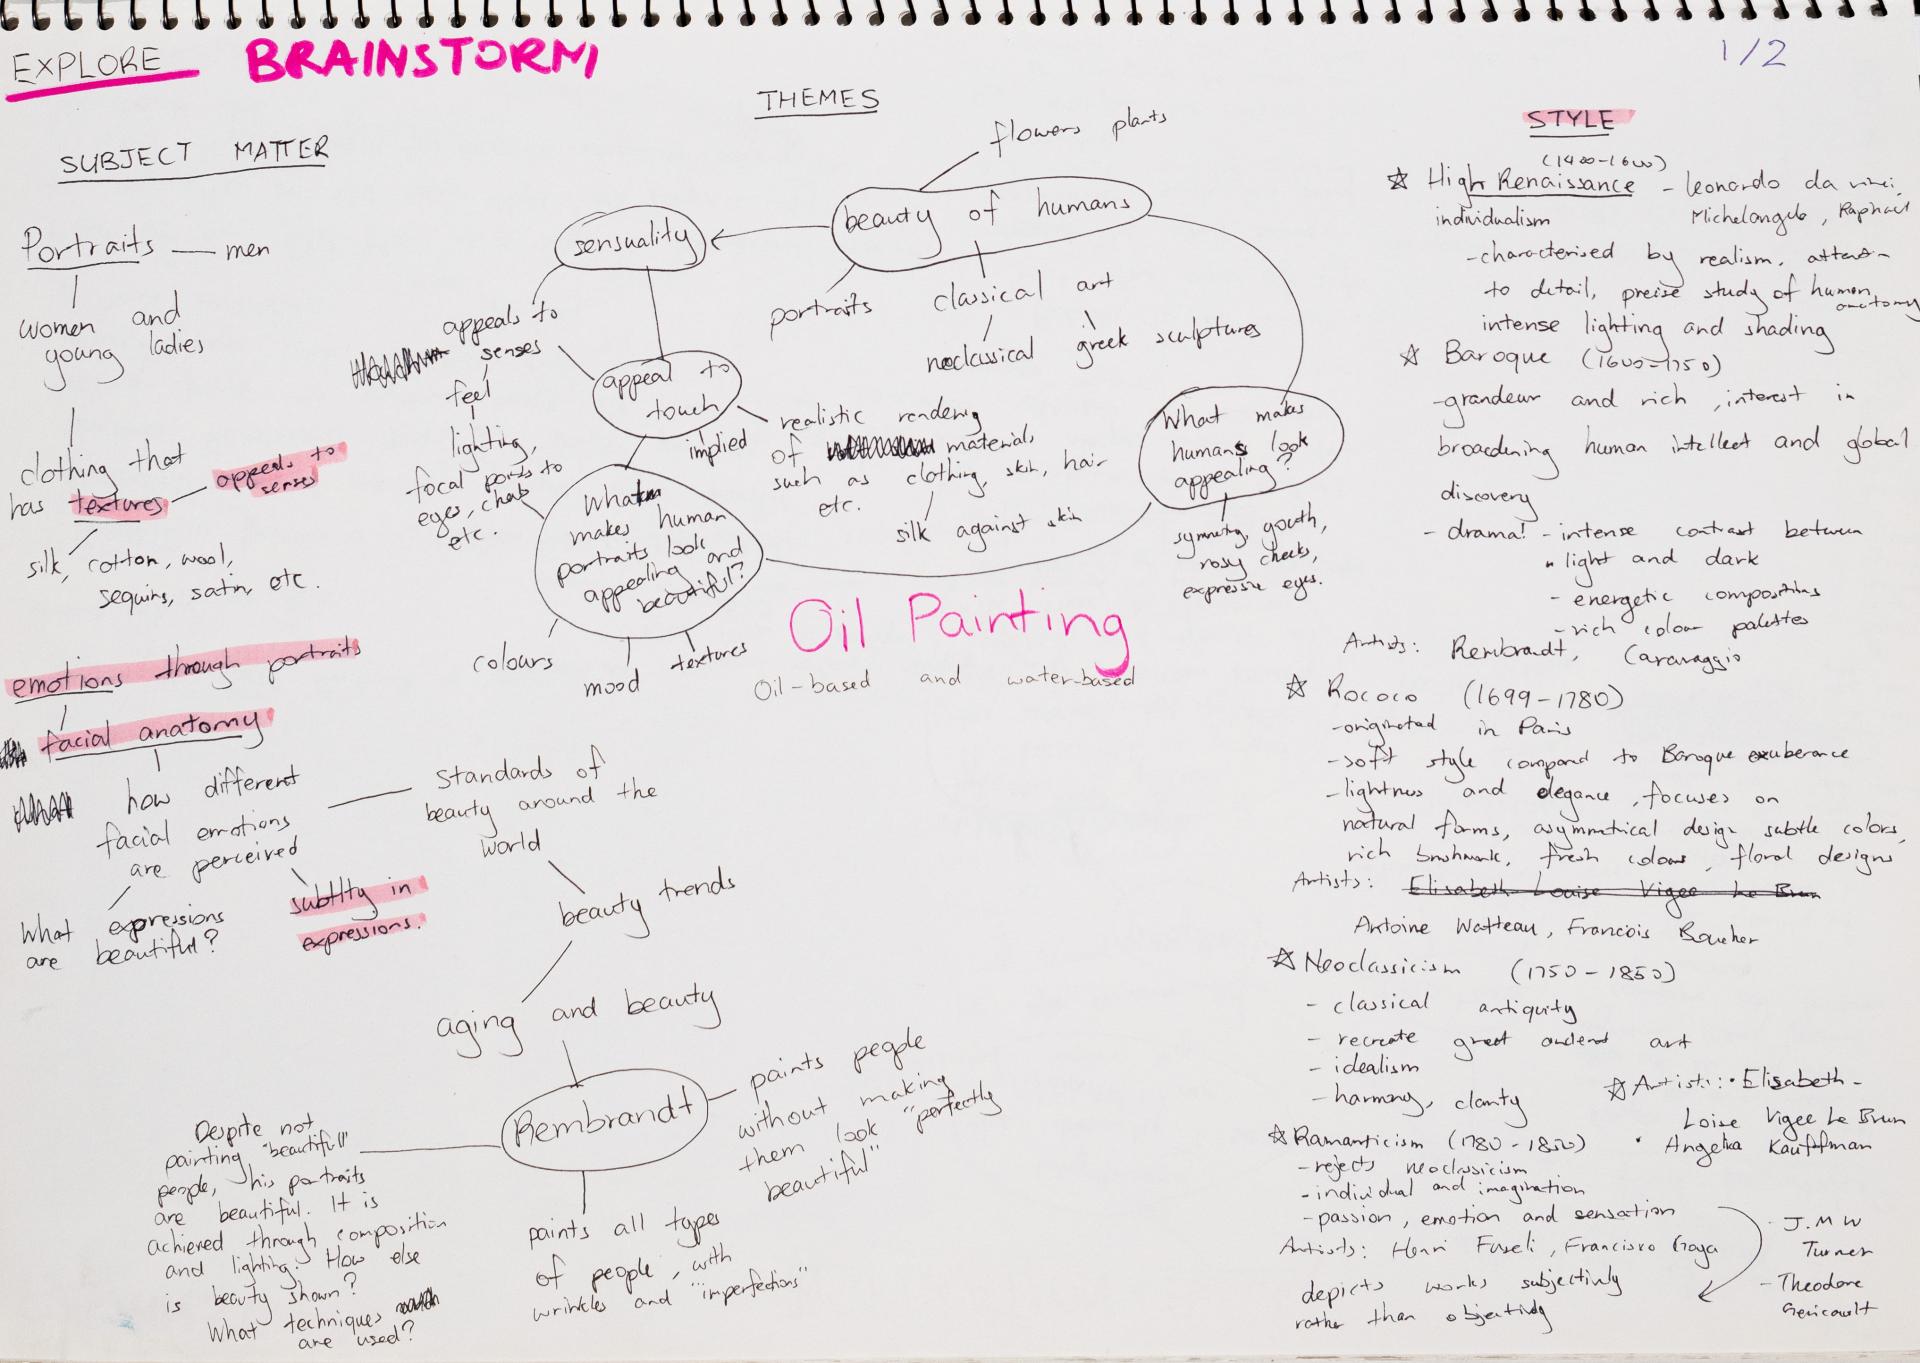 EXPLORE BRAINSTORM
1/2
SUBJECT MATTER
Portraits — men
women and
young ladies
clothing that
has textures
appeals to
senses
silk, cotton, wool,
sequins, satin, etc.
emotions through portraits
facial anatomy
how different
facial emotions
are perceived
What expressions
are beautiful?
subtlty in
expressions.
Standards of
beauty around the
world
beauty trends
aging and beauty
Rembrandt
paints people
without making
them look "perfectly
beautiful"
paints all types
of people, with
wrinkles and "imperfections"
Despite not
painting "beautiful"
people, his portraits
are beautiful. It is
achieved through composition
and lighting. How else
is beauty shown?
What techniques
are used?
THEMES
flowers plants
beauty of humans
sensuality
portraits
classical art
neoclassical
greek sculptures
appeals to
senses
feel
lighting,
focal points to
eyes, cheeks
etc.
appeal to
touch
implied
realistic rendering
of materials
such as clothing, skin, hair
etc.
silk against skin
What makes
humans look
appealing?
symmetry, youth,
rosy cheeks,
expressive eyes.
What
makes human
portraits look
appealing and
beautiful?
colours
mood
textures
Oil Painting
Oil-based and water-based
STYLE
(1400-1600)
☆ High Renaissance - leonardo da vinci,
individualism Michelangelo, Raphael
-characterised by realism, attention
to detail, precise study of human
anatomy
intense lighting and shading
☆ Baroque (1600-1750)
-grandeur and rich, interest in
broadening human intellect and global
discovery
- drama! - intense contrast between
- light and dark
- energetic compositions
- rich colour palettes
Artists: Rembrandt, Caravaggio
☆ Rococo (1699-1780)
-originated in Paris
-soft style compared to Baroque exuberance
-lightness and elegance, focuses on
natural forms, asymmetrical design, subtle colors,
rich brushwork, fresh colours, floral designs
Artists: Elisabeth Louise Vigee Le Brun
Antoine Watteau, Francois Boucher
☆ Neoclassicism (1750-1850)
- classical antiquity
- recreate great ancient art
- idealism
- harmony, clarity
☆ Artists: • Elisabeth-
Loise Vigee Le Brun
• Angelika Kauffman
☆ Romanticism (1780-1850)
- rejects neoclassicism
- individual and imagination
- passion, emotion and sensation
Artists: Henri Fuseli, Francisco Goya
- J.M W
Turner
- Theodore
Gericault
depicts works subjectivly
rather than objectivly